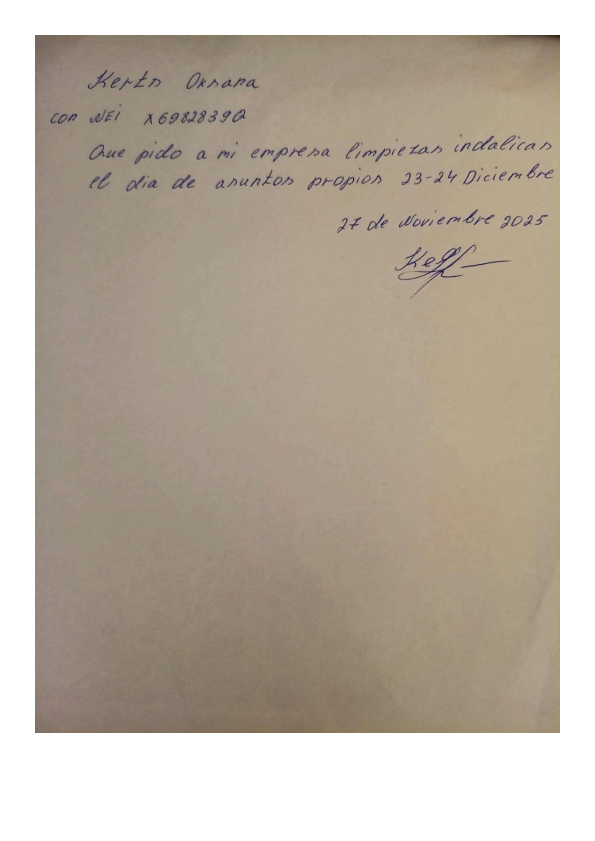 Kertn Oksana
con NEI X6982839Q
Que pido a mi empresa limpiezas indalicas
el dia de asuntos propios 23-24 Diciembre
27 de Noviembre 2025